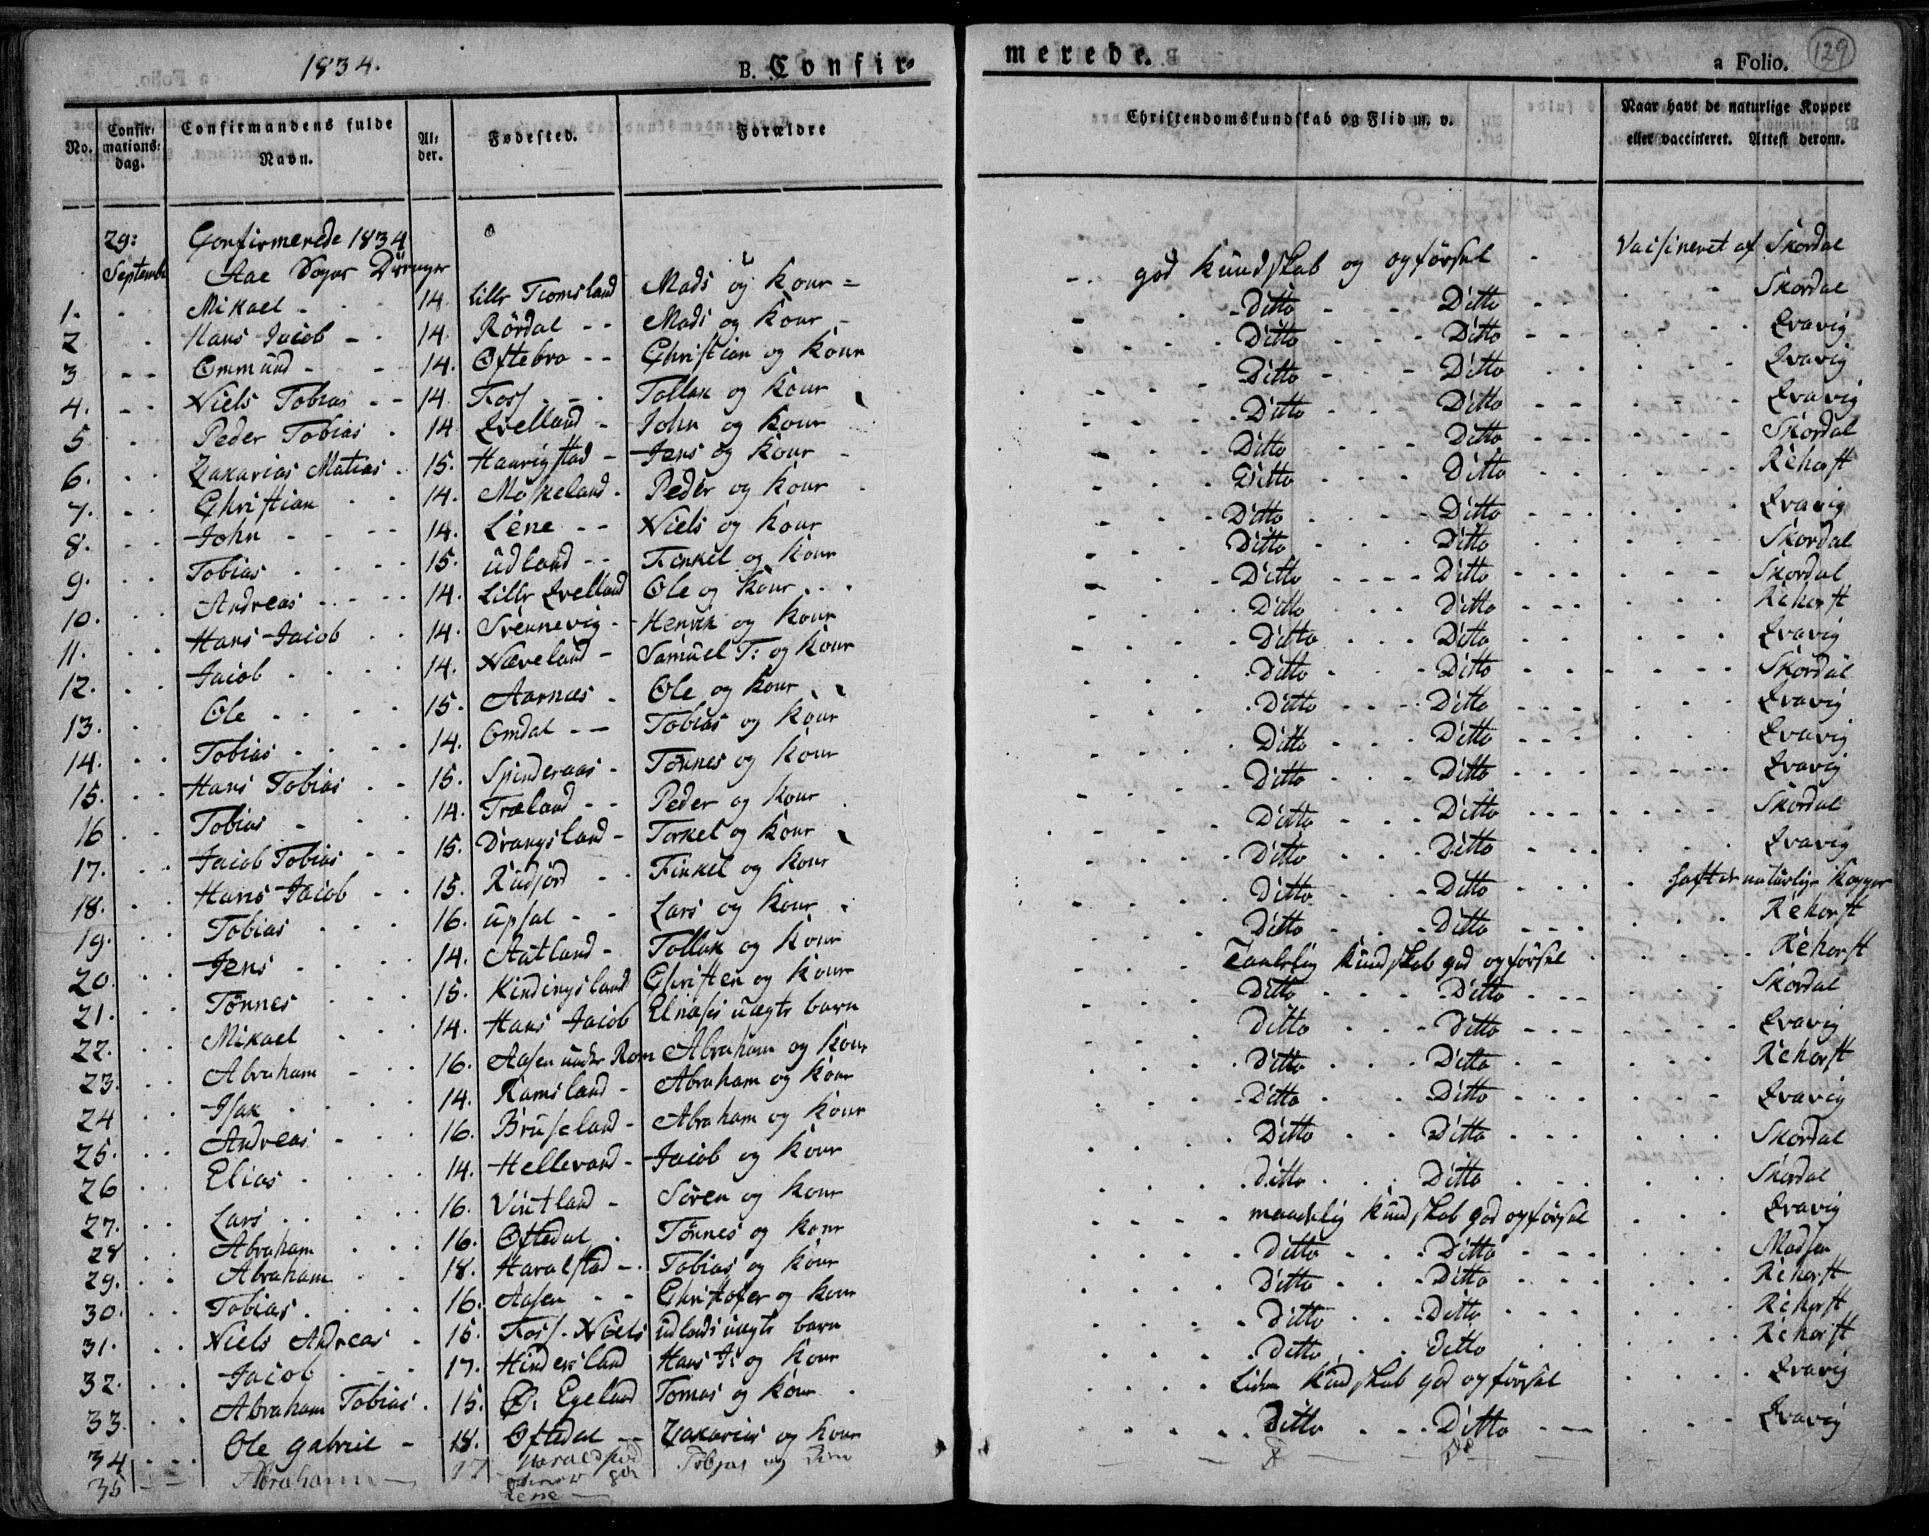 1834.
B. Confir-
merede.
129
a Folio.
No.
Confir-
mations-
dag.
Confirmandens fulde
Navn.
Al-
der.
Fødested.
Forældre
Christendomskundskab og Flid m. v.
Naar havt de naturlige Kopper
eller vaccineret. Attest derom.
29: Confirmerede 1834
September Aae Sogns Drenger
1. Mikael 14. Lille Tiomsland Mads og Kone god Kundskab og opførsel Vaisineret af Skordal
2 Hans Jacob 14. Rørdal Mads og Kone Ditto Ditto Skordal
3 Ommund 14. Oftebro Christian og Kone Ditto Ditto Qvavig
4. Niels Tobias 14 Foss Tollak og Kone Ditto Ditto Qvavig
5 Peder Tobias 14 Qvelland John og Kone Ditto Ditto Qvavig
6. Zakarias Matias 15. Haarigstad Jens og Kone Ditto Ditto Skordal
7. Christian 14. Møkeland Peder og Kone Ditto Ditto Rehorst
8. John 14. Lene Niels og Kone Ditto Ditto Qvavig
9. Tobias 15. Udland Finkel og Kone Ditto Ditto Skordal
10. Andreas 14. Lille Qvelland Ole og Kone Ditto Ditto Skordal
11. Hans Jacob 14. Svennevig Henrik og Kone Ditto Ditto Rehorst
12. Jacob 14. Næveland Samuel T: og Kone Ditto Ditto Qvavig
13. Ole 15. Aarnæs Ole og Kone Ditto Ditto Skordal
14. Tobias 14. Omdal Tobias og Kone Ditto Ditto Qvavig
15. Hans Tobias 15. Spinderaas Tønnes og Kone Ditto Ditto Qvavig
16 Tobias 14. Træland Peder og Kone Ditto Ditto Qvavig
17. Jacob Tobias 15. Drangsland Torkel og Kone Ditto Ditto Skordal
18. Hans Jacob 15. Rudjord Finkel og Kone Ditto Ditto Qvavig
19. Tobias 16. Upsal Lars og Kone Ditto Ditto haft de naturlige Kopper
20. Jens 14. Aatland Tollak og Kone Ditto Ditto Rehorst
21. Tønnes 15. Kindingsland Christen og Kone Taalelig Kundskab god opførsel Rehorst
22. Mikael 14. Hans Jacob uægte barn Ditto Ditto Skordal
23. Abraham 16. Aasen under Rom Abraham og Kone Ditto Ditto Qvavig
24 Isak 14. Ramsland Abraham og Kone Ditto Ditto Rehorst
25. Andreas 16. Bruseland Abraham og Kone Ditto Ditto Qvavig
26 Elias 14. Hellevand Jacob og Kone Ditto Ditto Skordal
27. Lars 16. Vintland Søren og Kone Ditto Ditto Skordal
28 Abraham 16. Oftedal Tønnes og Kone maadelig Kundskab god opførsel Qvavig
29. Abraham 18. Haralstad Tobias og Kone Ditto Ditto Madsen
30. Tobias 16. Aasen Christofer og Kone Ditto Ditto Rehorst
31. Niels Andreas 15. Foss Niels Udlands uægte barn Ditto Ditto Rehorst
32. Jacob 17. Hindersland Hans J: og Kone Ditto Ditto Rehorst
33. Abraham Tobias 15. Ø. Egeland Tomas og Kone Liden Kundskab god opførsel Qvavig
34 Ole Gabriel 18. Oftedal Zakarias og Kone Ditto Ditto Qvavig
35 Abraham 17 Haralstad Tobias og Lene